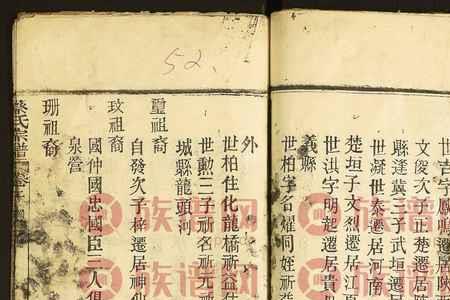 52.
世吉字鳳鳴遷陝
文俊次子正楚遷
縣逢眞三子武垣遷
世凝世泰遷居河南
楚垣子文烈遷江
世汯字明起遷居貴
義縣
世柏字名耀同姓祈
外
世柏住化龍橋祈益
世勲三子祈名祈元
城縣龍頭河
璽祖裔
自發次子梓遷居神仙
玟祖裔
國仲國忠國臣二人俱
泉營
珊祖裔
氏宗譜
族谱网